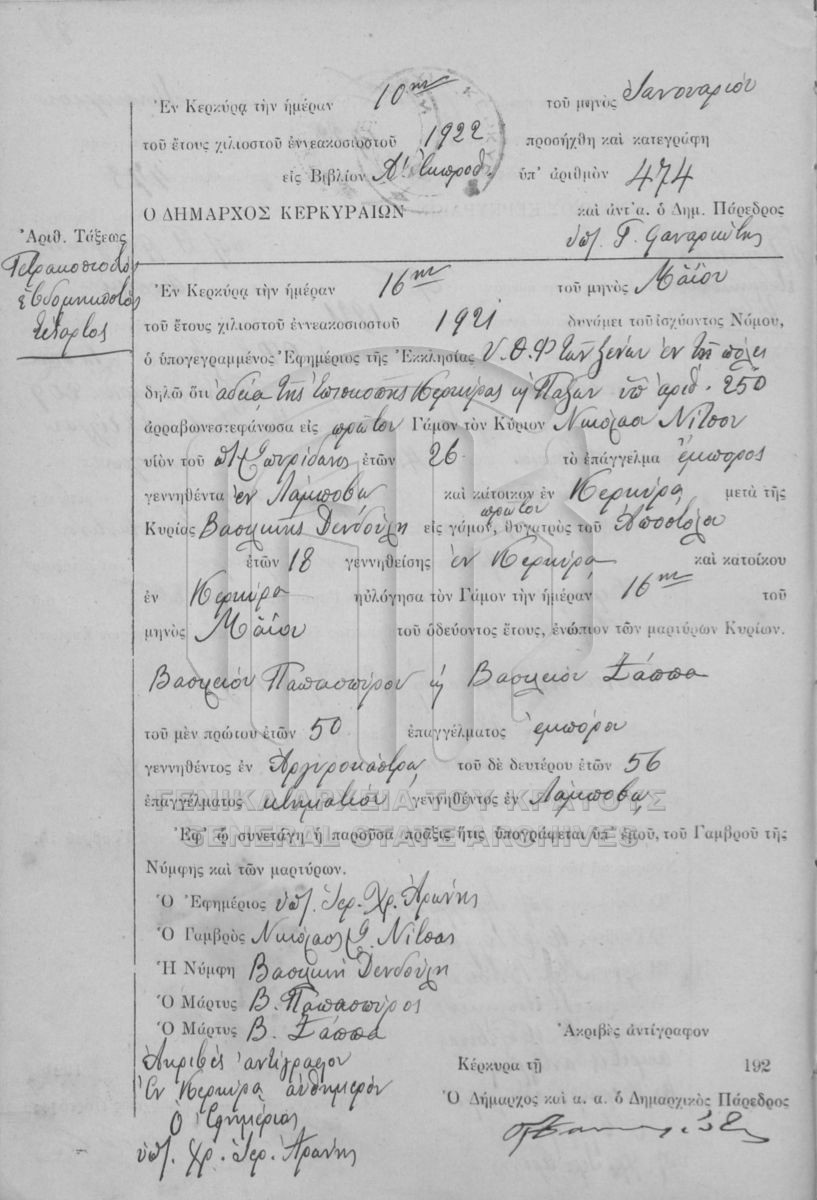 Ἐν Κερκύρᾳ τὴν ἡμέραν 10ην τοῦ μηνὸς Ἰανουαρίου
τοῦ ἔτους χιλιοστοῦ ἐννεακοσιοστοῦ 1922 προσήχθη καὶ κατεγράφη
εἰς Βιβλίον Α' Ἐκπροθ. ὑπ' ἀριθμὸν 474
Ο ΔΗΜΑΡΧΟΣ ΚΕΡΚΥΡΑΙΩΝ καὶ ἀντ' α. ὁ Δημ. Πάρεδρος
ὑπ. Γ. Φαναριώτης
Ἀριθ. Τάξεως
Τετρακοσιοστὸς
ἑβδομηκοστὸς
τέταρτος
Ἐν Κερκύρᾳ τὴν ἡμέραν 16ην τοῦ μηνὸς Μαΐου
τοῦ ἔτους χιλιοστοῦ ἐννεακοσιοστοῦ 1921 δυνάμει τοῦ ἰσχύοντος Νόμου,
ὁ ὑπογεγραμμένος Ἐφημέριος τῆς Ἐκκλησίας Υ. Θ. Φ τῶν Ξένων ἐν τῇ πόλει
δηλῶ ὅτι ἀδείᾳ τῆς Ἐπισκοπῆς Κερκύρας κ Παξῶν ὑπ ἀριθ. 250
ἀρραβωνεστεφάνωσα εἰς πρῶτον Γάμον τὸν Κύριον Νικόλαον Νίτσον
υἱὸν τοῦ Σπυρίδωνος ἐτῶν 26 τὸ ἐπάγγελμα ἔμπορος
γεννηθέντα ἐν Λάμποβα καὶ κάτοικον ἐν Κερκύρᾳ μετὰ τῆς
Κυρίας Βασιλικῆς Δενδούλη εἰς πρῶτον γάμον, θυγατρὸς τοῦ Ἀποστόλου
ἐτῶν 18 γεννηθείσης ἐν Κερκύρᾳ καὶ κατοίκου
ἐν Κερκύρᾳ ηὐλόγησα τὸν Γάμον τὴν ἡμέραν 16ην τοῦ
μηνὸς Μαΐου τοῦ ὁδεύοντος ἔτους, ἐνώπιον τῶν μαρτύρων Κυρίων.
Βασιλείου Παπασπύρου κ Βασιλείου Ζάππα
τοῦ μὲν πρώτου ἐτῶν 50 ἐπαγγέλματος ἐμπόρου
γεννηθέντος ἐν Ἀργυροκάστρῳ τοῦ δὲ δευτέρου ἐτῶν 56
ἐπαγγέλματος κτηματίου γεννηθέντος ἐν Λάμποβᾳ
ΓΕΝΙΚΑ ΑΡΧΕΙΑ ΤΟΥ ΚΡΑΤΟΥΣ
GENERAL STATE ARCHIVES
Ἐφ' ᾧ συνετάγη ἡ παροῦσα πρᾶξις ἥτις ὑπογράφεται ὑπ' ἐμοῦ, τοῦ Γαμβροῦ τῆς
Νύμφης καὶ τῶν μαρτύρων.
Ὁ Ἐφημέριος ὑπ. Ἱερ. Χρ. Ἀρώνης
Ὁ Γαμβρὸς Νικόλαος Σ. Νίτσος
Ἡ Νύμφη Βασιλικὴ Δενδούλη
Ὁ Μάρτυς Β. Παπασπύρος
Ὁ Μάρτυς Β. Ζάππα
Ἀκριβὲς ἀντίγραφον
Ἀκριβὲς ἀντίγραφον
Κέρκυρα τῇ 192
Ἐν Κερκύρᾳ αὐθημερόν
Ὁ Δήμαρχος καὶ α. α. ὁ Δημαρχικὸς Πάρεδρος
Ὁ Ἐφημέριος
ὑπ. Χρ. Ἱερ. Ἀρώνης